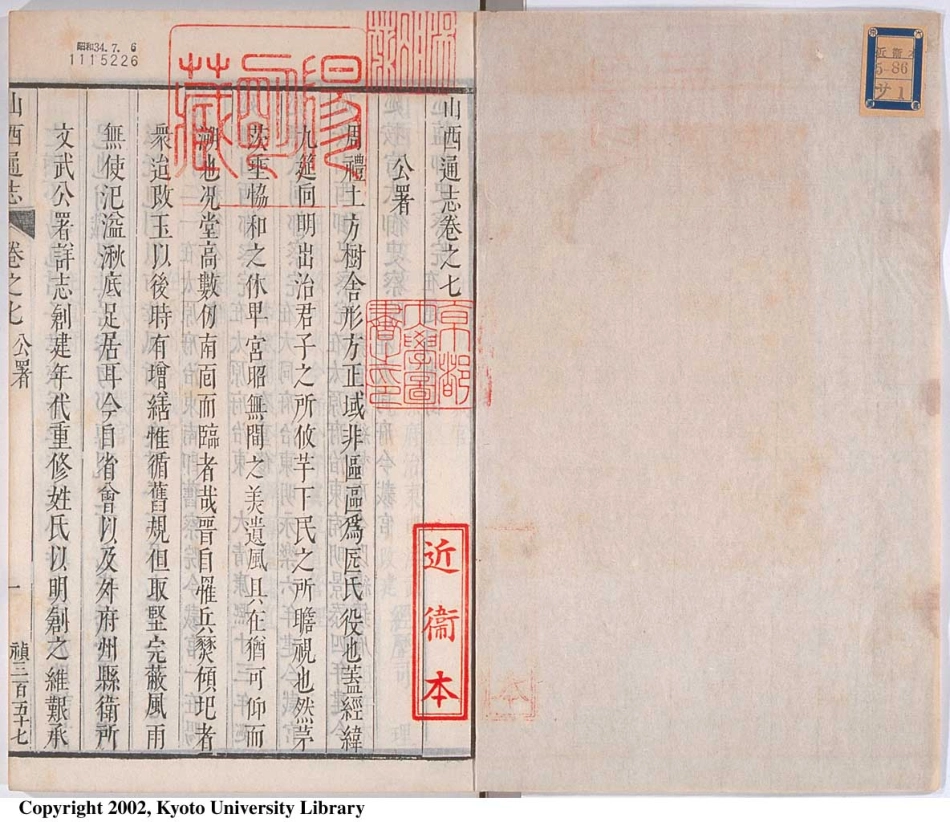 昭和34.7.6
1115226
近衞
5-86
サ 1
山西通志卷之七
公署
周禮土方樹舍形方正域非區區爲匠氏役也蓋經緯
九筵向明出治君子之所攸芋下民之所瞻視也然茅
茨垂恊和之休卑宮昭無間之美遺風具在猶可仰而
溯也况堂高數仞南面而臨者哉晉自罹兵燹傾圯者
衆迨改玉以後時有增繕惟循舊規但取堅完蔽風雨
無使汜溢湫底足居耳今自省會以及外府州縣衛所
文武公署詳志創建年代重修姓氏以明創之維艱承
山西通志
卷之七 公署
一
禎三百五十七
京都
大學圖
書之印
近衞本
Copyright 2002, Kyoto University Library